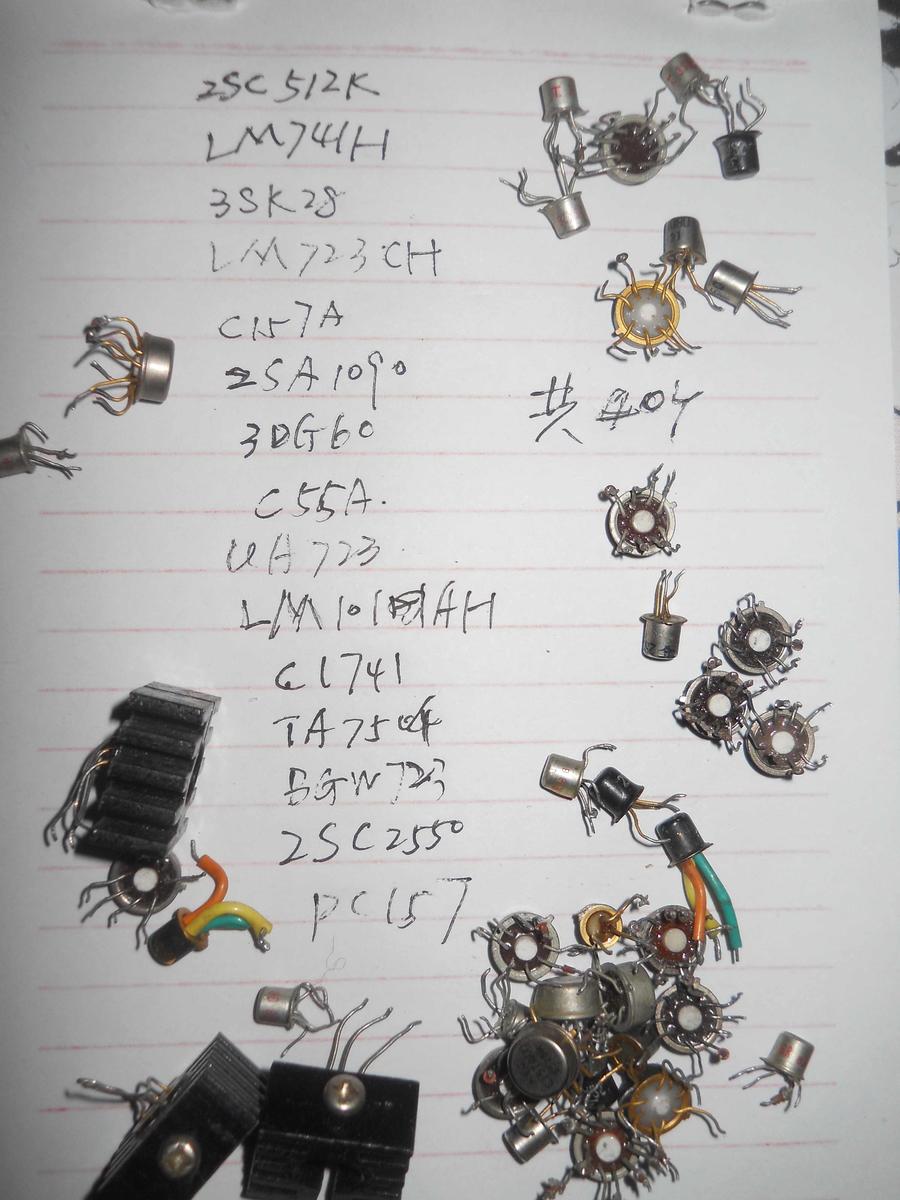 2SC512K
LM741H
3SK28
LM723CH
C157A
2SA1090
3DG60
共404
C55A.
UA723
LM101AH
C1741
TA7504
BGW723
2SC2550
PC157